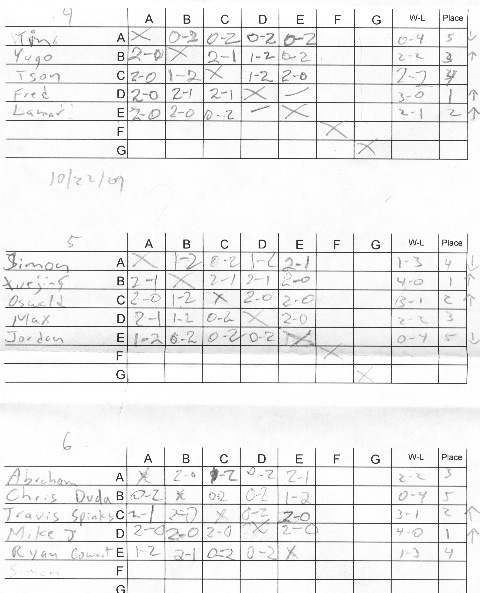 4
A B C D E F G W-L Place
A X 0-2 0-2 0-2 0-2 0-4 5 ↓
Yugo B 2-0 X 2-1 1-2 0-2 2-2 3 ↑
Tson C 2-0 1-2 X 1-2 2-0 2-2 4
Fred D 2-0 2-1 2-1 X – 3-0 1 ↑
Lamar E 2-0 2-0 0-2 – X 2-1 2 ↑
F X
G X
10/22/09
5
A B C D E F G W-L Place
Simon A X 1-2 0-2 1-2 2-1 1-3 4 ↓
Xuejing B 2-1 X 2-1 2-1 2-0 4-0 1 ↑
Oswald C 2-0 1-2 X 2-0 2-0 3-1 2 ↑
Max D 2-1 1-2 0-2 X 2-0 2-2 3
Jordan E 1-2 0-2 0-2 0-2 X 0-4 5 ↓
F X
G X
6
A B C D E F G W-L Place
Abraham A X 2-0 1-2 0-2 2-1 2-2 3
Chris Duda B 0-2 X 0-2 0-2 1-2 0-4 5
Travis Spinks C 2-1 2-0 X 0-2 2-0 3-1 2 ↑
Mike J D 2-0 2-0 2-0 X 2-0 4-0 1 ↑
Ryan Cowart E 1-2 2-1 0-2 0-2 X 1-3 4
Simon F
G